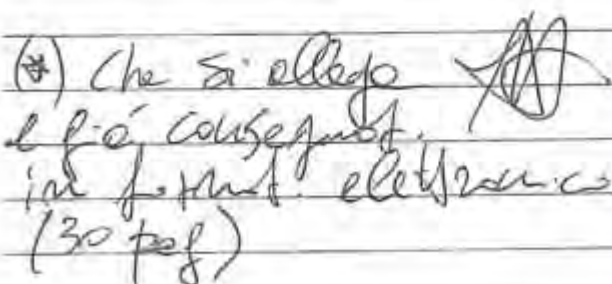 (*) Che si allega
e già consegnat.
in format. elettronico
(30 pag)